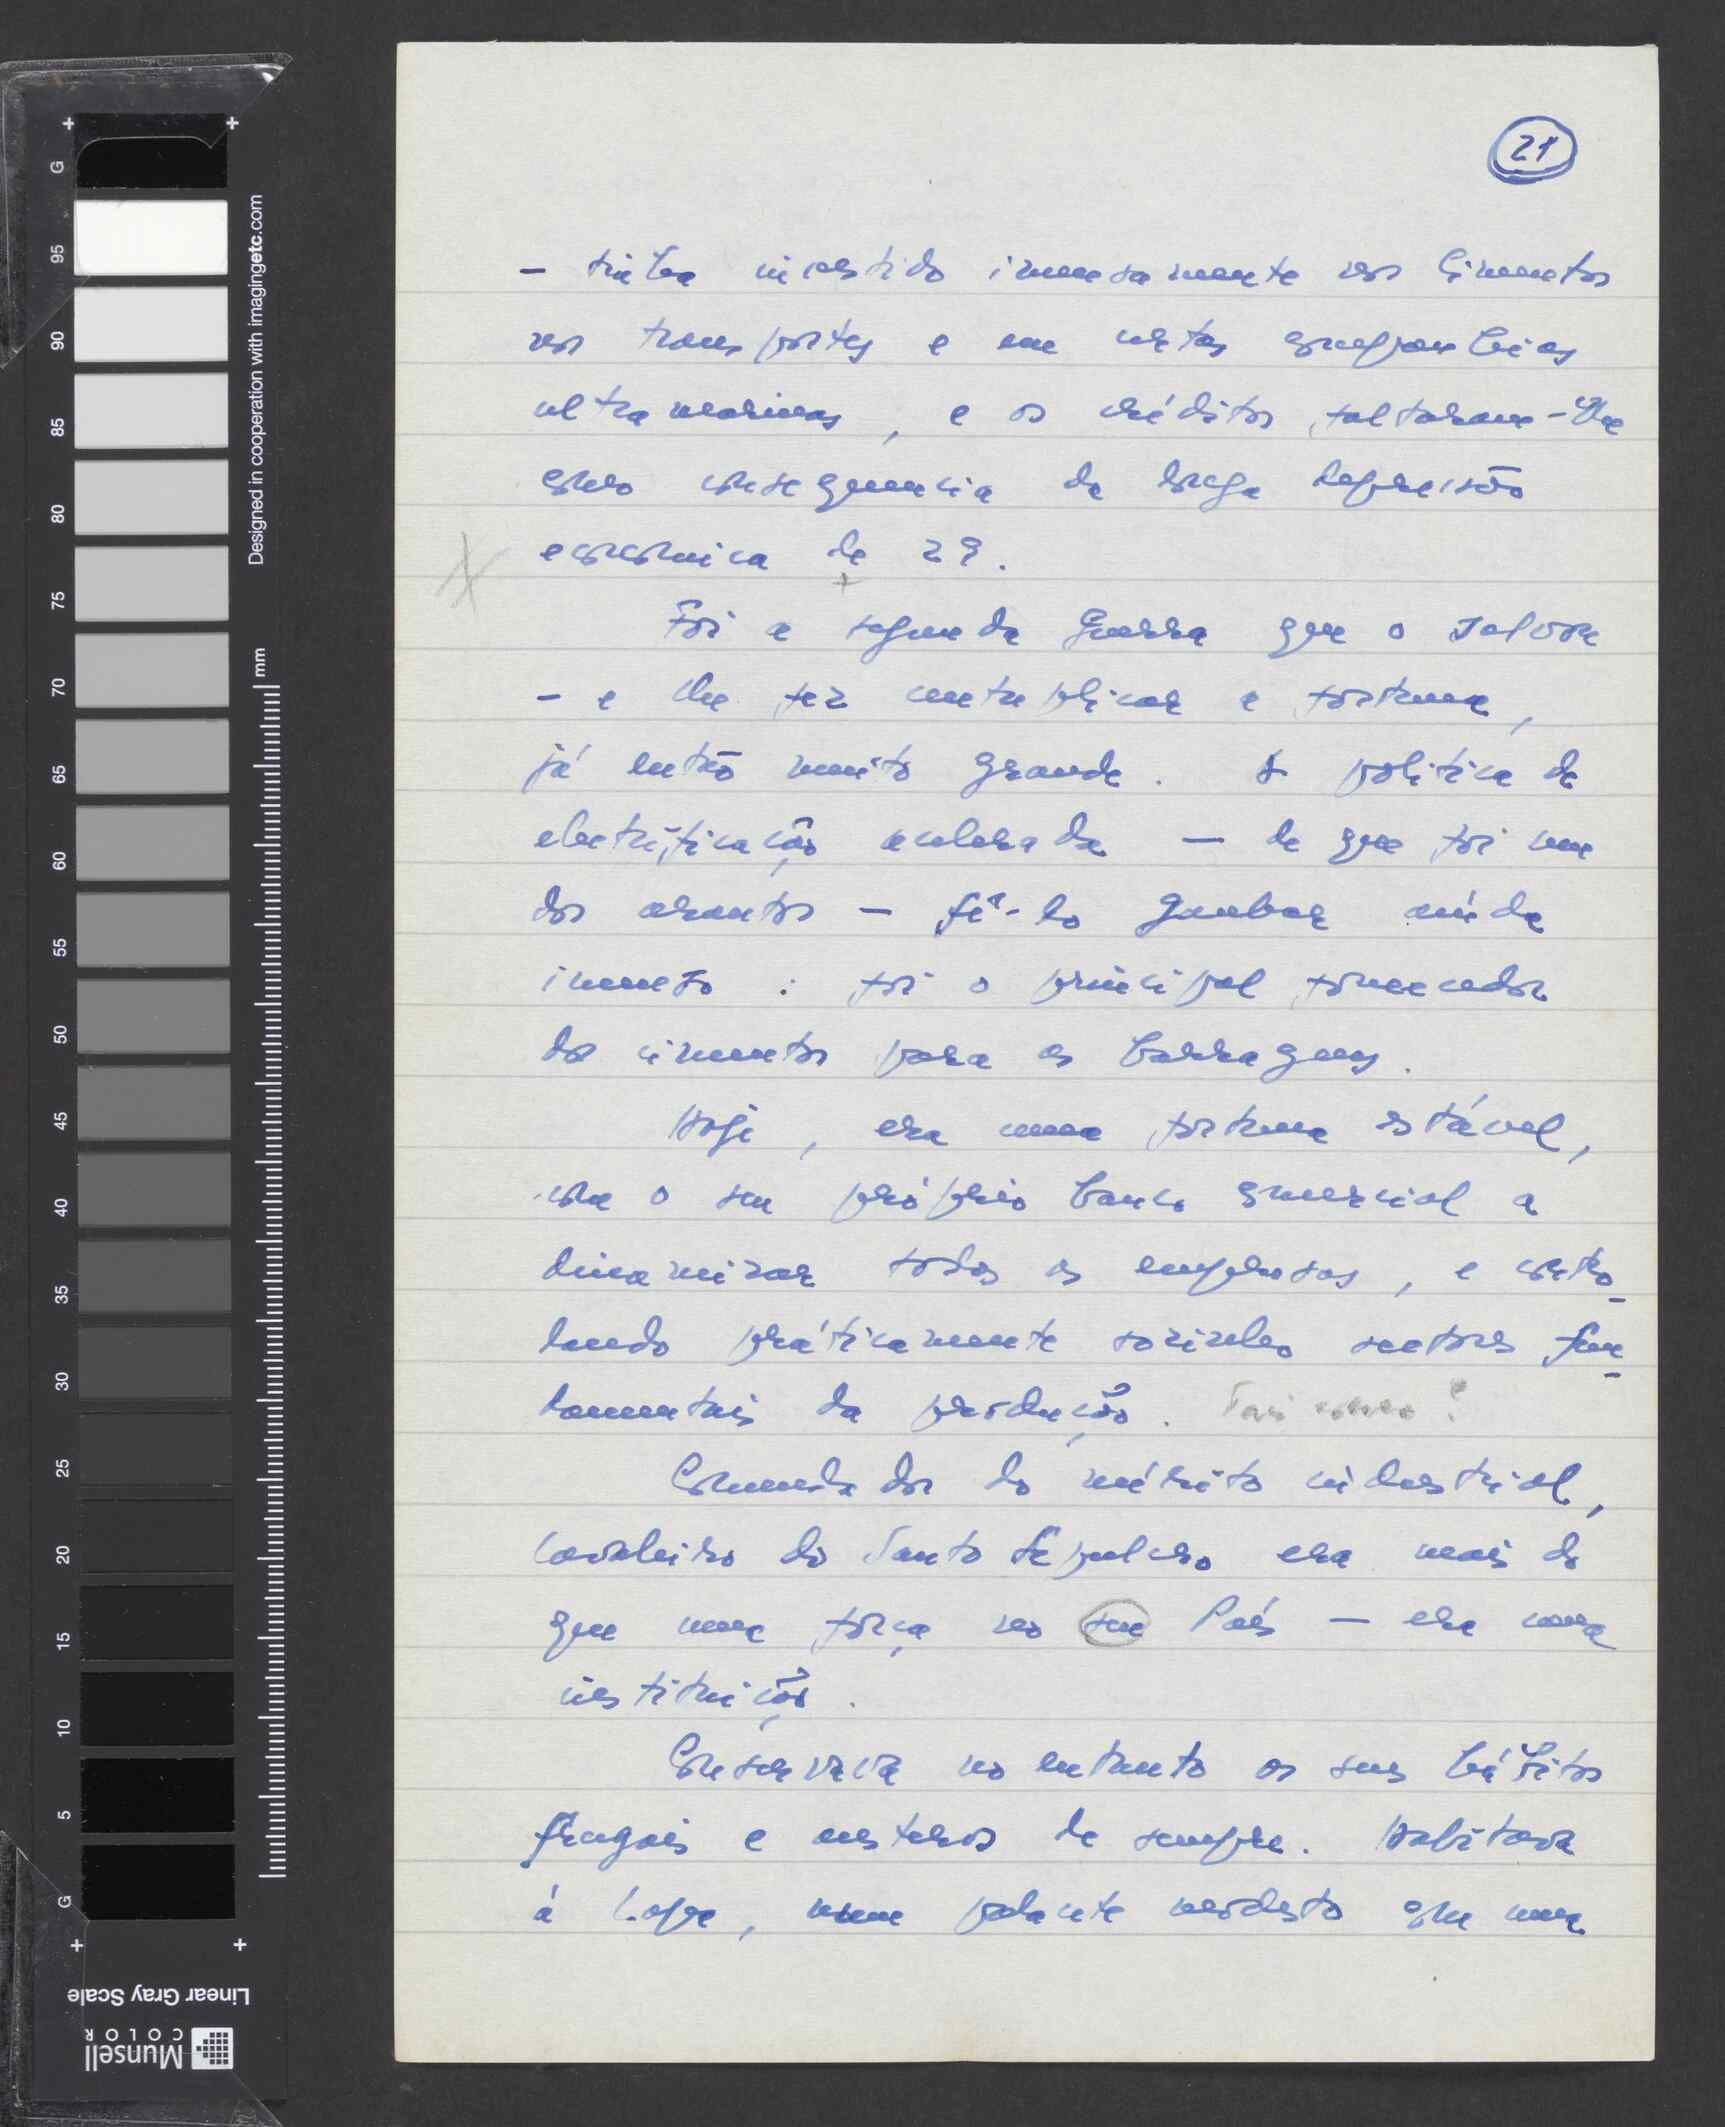 21
- tinha investido imensamente nos Cimentos
nos transportes e em certas companhias
ultramarinas, e os créditos faltaram-lhe
como consequencia da longa depressão
económica de 29.
Foi a segunda Guerra que o salvou
- e lhe fez multiplicar a fortuna,
já então muito grande. A politica de
electrificação acelerada — de que foi um
dos arautos — fê-lo ganhar ainda
imenso : foi o principal fornecedor
dos cimentos para as barragens.
Hoje, era uma fortuna estável,
com o seu próprio banco comercial a
dinamizar todas as empresas, e contro-
lando práticamente sózinho sectores fun-
damentais da produção.
Comendador do mérito industrial,
Cavaleiro do Santo Sepulcro era mais do
que uma força no seu País — era uma
instituição.
Conservava no entanto os seus hábitos
frugais e austeros de sempre. Habitava
à Lapa, num palacete modesto com uma
G
95
90
85
80
75
70
65
60
55
50
45
40
35
30
25
20
15
10
5
G
mm
Designed in cooperation with imagingetc.com
Linear Gray Scale
Munsell
COLOR